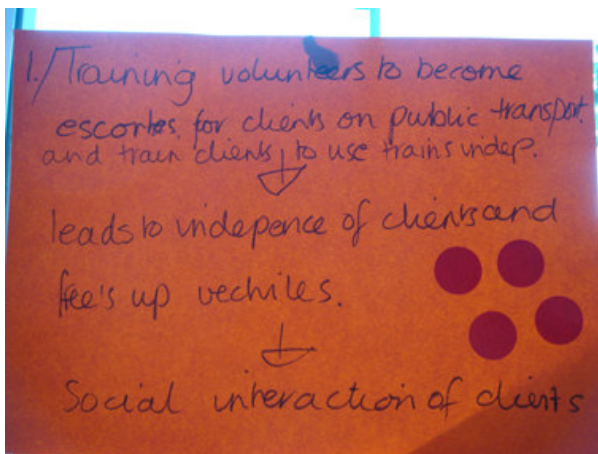 1./Training volunteers to become
escortes. for clients on public transport.
and train clients to use trains indep.
leads to indepence of clients and
free's up vechiles.
Social interaction of clients